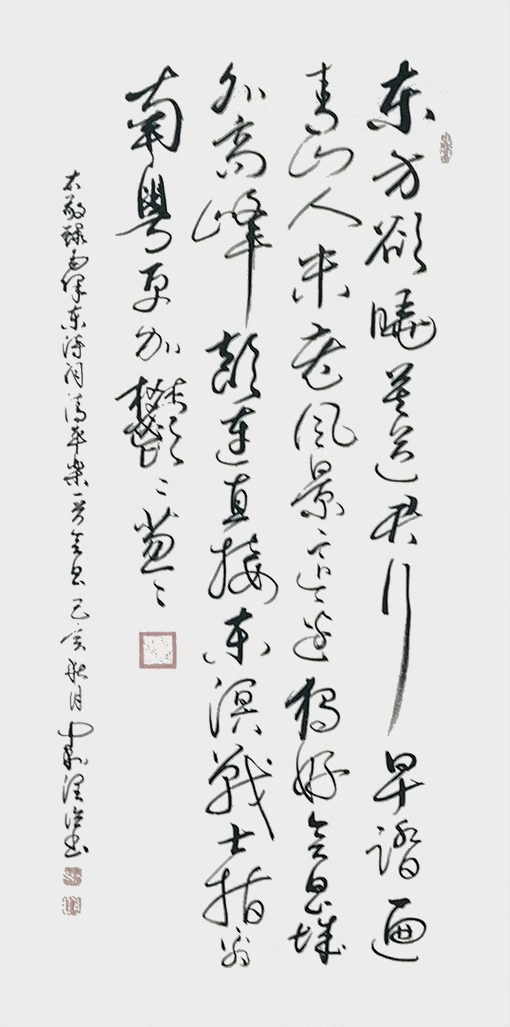 东方欲曉莫道君行早踏遍
青山人未老风景这边独好会昌城
外高峰颠连直接东溟战士指看
南粤更加鬱〻葱〻
右敬録毛泽东诗词清平乐一首会昌 己亥秋月